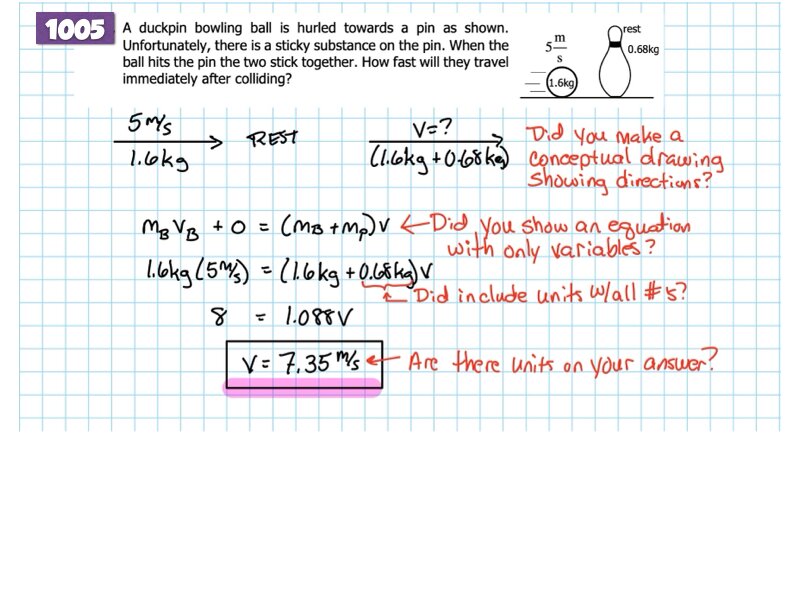 1005 A duckpin bowling ball is hurled towards a pin as shown.
Unfortunately, there is a sticky substance on the pin. When the
ball hits the pin the two stick together. How fast will they travel
immediately after colliding?
5 m/s
1.6kg
rest
0.68kg
5 m/s
1.6kg
REST
V=?
(1.6kg + 0.68kg)
Did you make a
conceptual drawing
showing directions?
m_B V_B + 0 = (m_B + m_p)v
Did you show an equation
with only variables?
1.6kg(5 m/s) = (1.6kg + 0.68kg)v
Did include units w/all #'s?
8 = 1.088V
V = 7.35 m/s
Are there units on your answer?